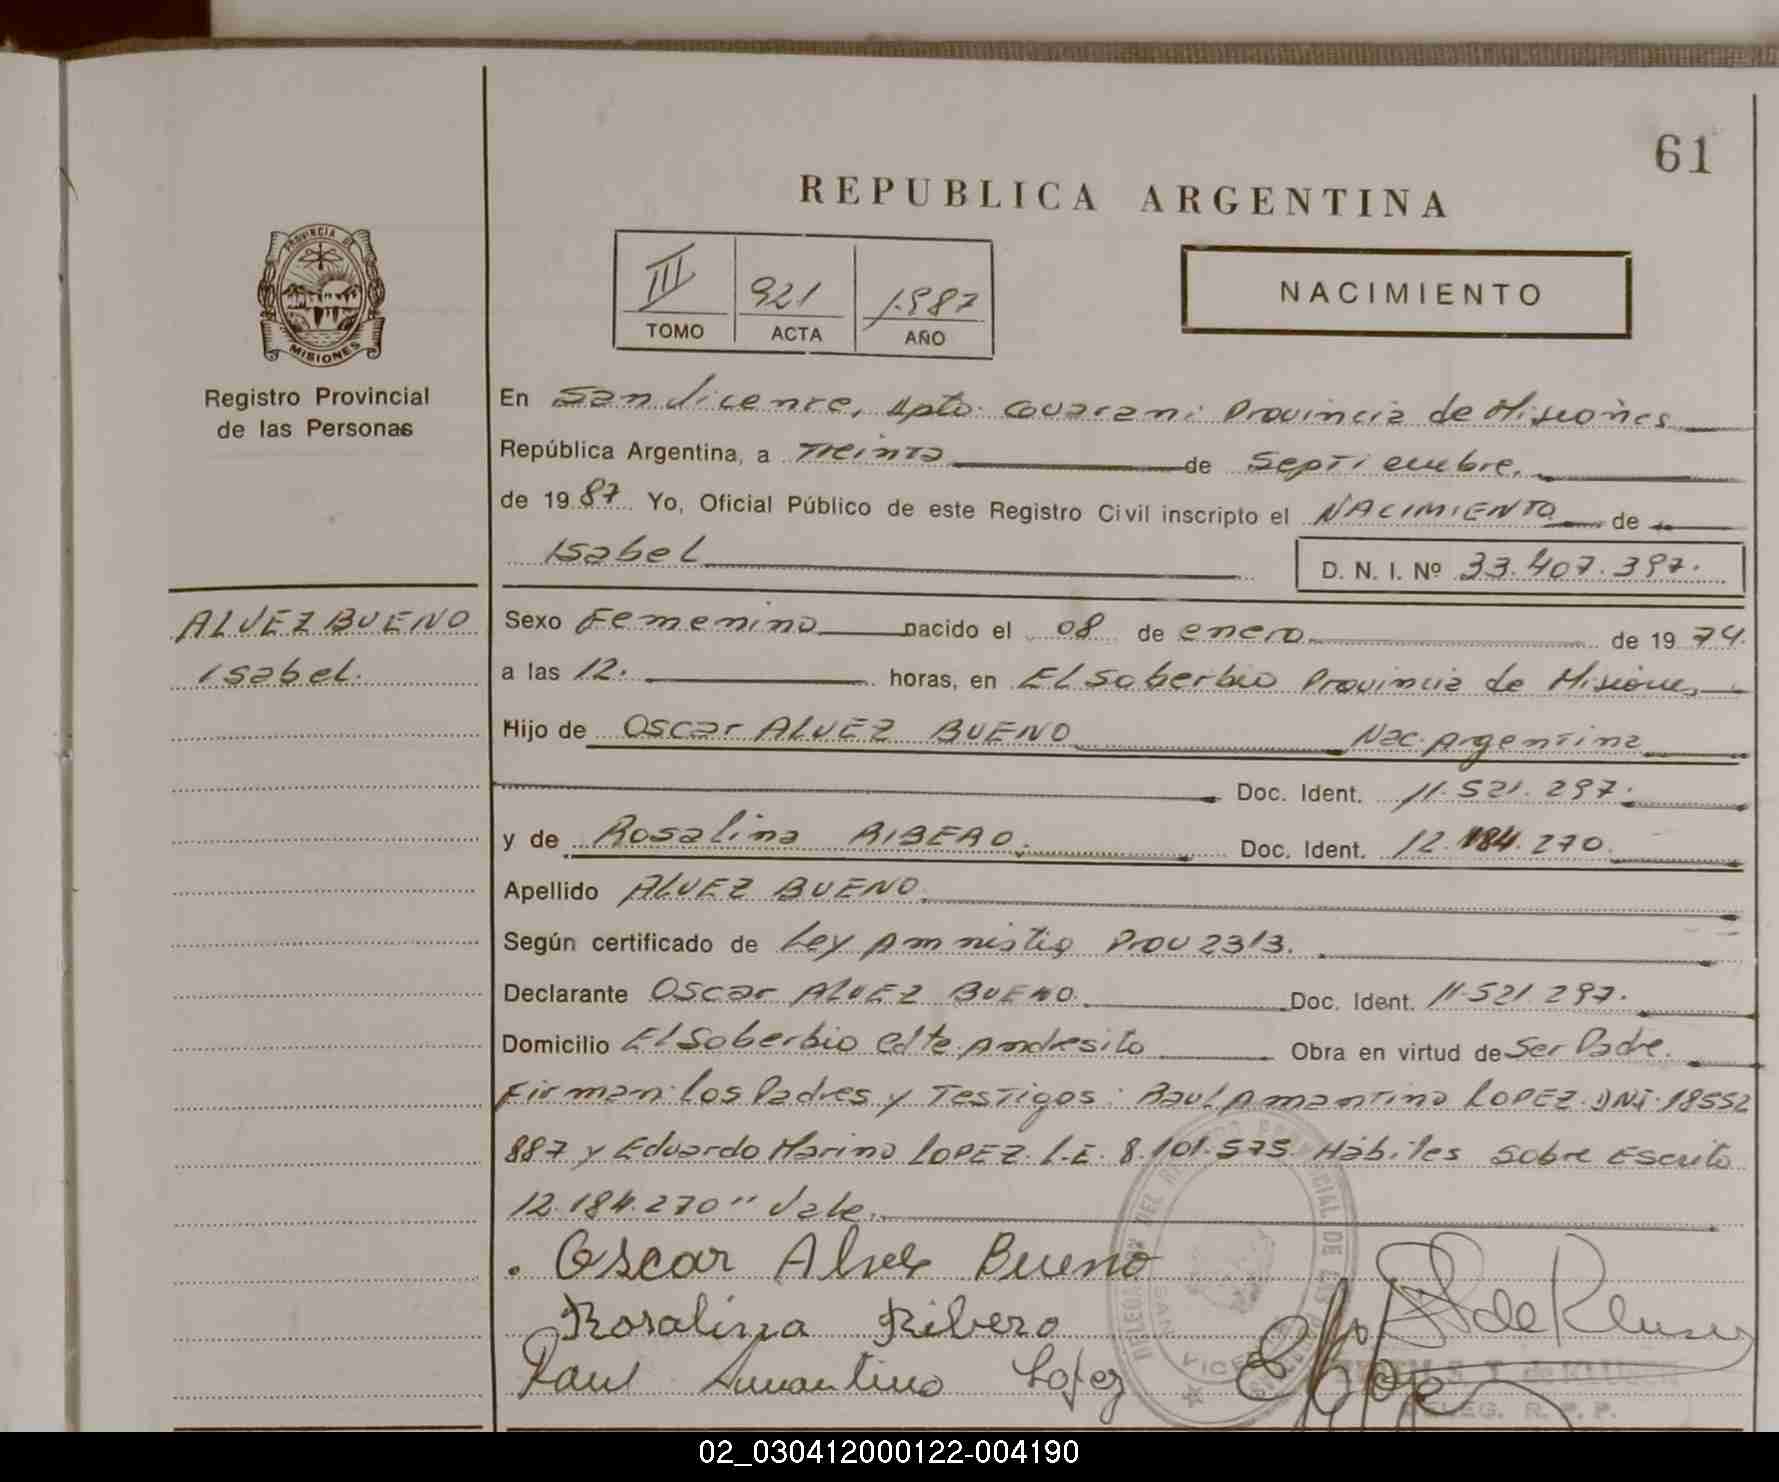 61
REPUBLICA ARGENTINA
PROVINCIA DE
MISIONES
III 921 1.987
TOMO ACTA AÑO
NACIMIENTO
Registro Provincial
de las Personas
En San Vicente, Dpto. Guarani Provincia de Misiones
República Argentina, a Treinta de Septiembre.
de 1987. Yo, Oficial Público de este Registro Civil inscripto el NACIMIENTO de
Isabel D. N. I. Nº 33.407.397.
ALVEZ BUENO
Isabel.
Sexo Femenino nacido el 08 de enero de 1974.
a las 12. horas, en El Soberbio Provincia de Misiones
Hijo de Oscar ALVEZ BUENO Nac. Argentina
Doc. Ident. 11.521.297.
y de Rosalina RIBERO. Doc. Ident. 12.184.270.
Apellido ALVEZ BUENO.
Según certificado de Ley Amnistia Prov 2313.
Declarante Oscar ALVEZ BUENO. Doc. Ident. 11.521.297.
Domicilio El Soberbio Cdte. Andresito Obra en virtud de Ser Padre.
Firman: Los Padres y Testigos: Raul Amantino LOPEZ. DNI. 18552
887 y Eduardo Marino LOPEZ. L.E. 8.101.575. Hábiles Sobre Escrito
12.184.270" Vale.
. Oscar Alvez Bueno
Rosalina Ribero
Raul Amantino Lopez
DELEG. R. P. P.
02_030412000122-004190